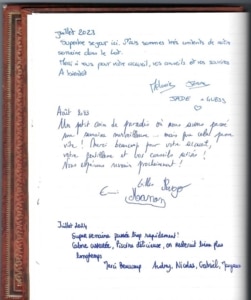 Juillet 2023
Superbe séjour ici. Nous sommes très contents de notre
semaine dans le Lot.
Merci à vous pour votre accueil, vos conseils et vos sourires
A bientôt
JADE + GUESS
Août 2023
Un petit coin de paradis où nous avons passé
une semaine merveilleuse mais que cela passe
vite ! Merci beaucoup pour votre accueil,
votre gentillesse et vos conseils !
Nous espérons revenir prochainement !
Juillet 2024
Super semaine passée trop rapidement !
Cabane, piscine délicieuse, on resterait bien plus
longtemps
Merci beaucoup Audrey, Nicolas, Gabriel,